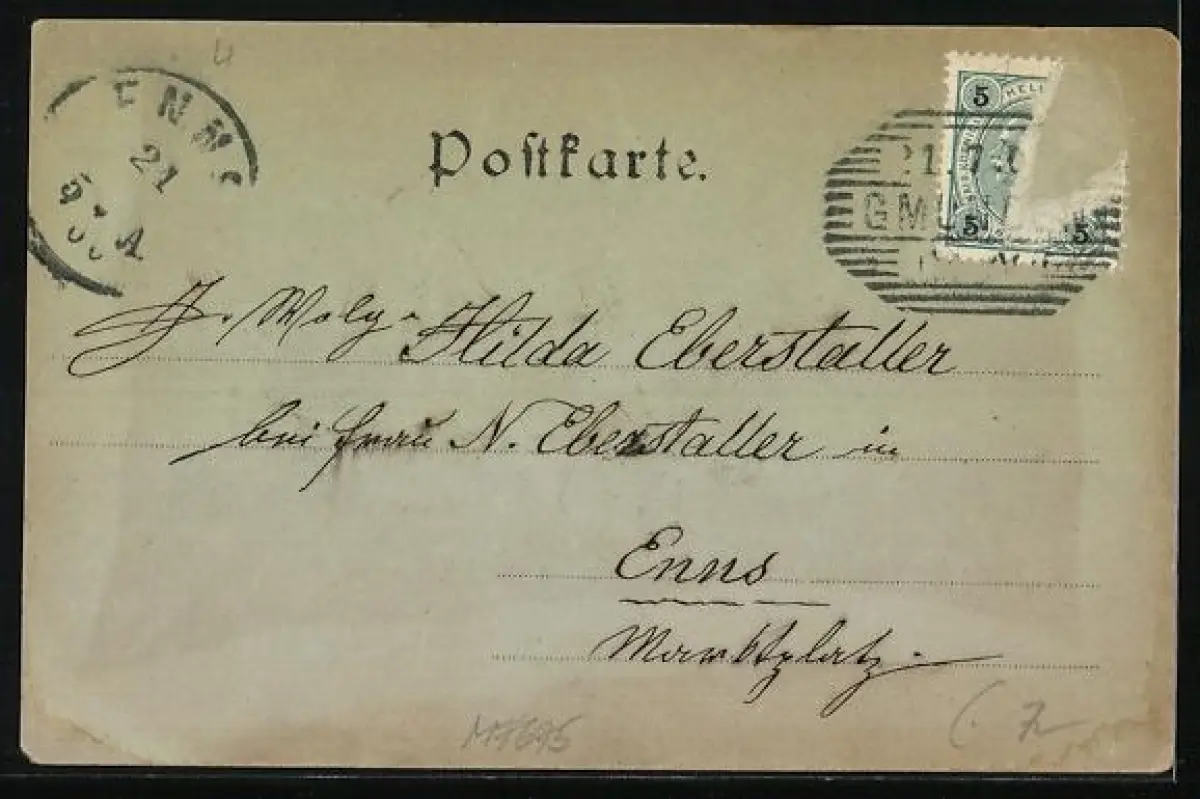 ENNS
21
5
HELLER
5
5
21. 7.
GM
Postkarte.
Hilda Eberstaller
bei Frau N. Eberstaller in
Enns
Marktplatz.
M7695
7